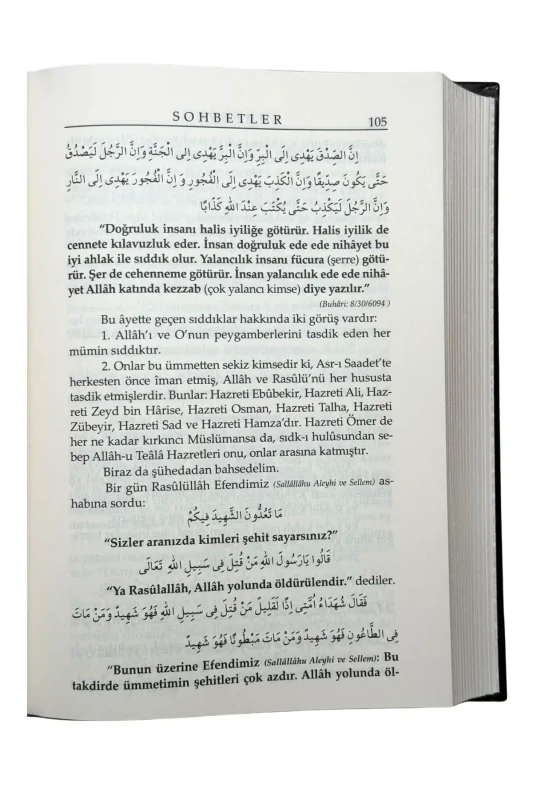 SOHBETLER 105
اِنَّ الصِّدْقَ يَهْدِى اِلَى الْبِرِّ وَاِنَّ الْبِرَّ يَهْدِى اِلَى الْجَنَّةِ وَاِنَّ الرَّجُلَ لَيَصْدُقُ
حَتَّى يَكُونَ صِدِّيقًا وَاِنَّ الْكَذِبَ يَهْدِى اِلَى الْفُجُورِ وَ اِنَّ الْفُجُورَ يَهْدِى اِلَى النَّارِ
وَاِنَّ الرَّجُلَ لَيَكْذِبُ حَتَّى يُكْتَبَ عِنْدَ اللهِ كَذَّابًا
“Doğruluk insanı halis iyiliğe götürür. Halis iyilik de
cennete kılavuzluk eder. İnsan doğruluk ede ede nihâyet bu
iyi ahlak ile sıddık olur. Yalancılık insanı fücura (şerre) götü-
rür. Şer de cehenneme götürür. İnsan yalancılık ede ede nihâ-
yet Allâh katında kezzab (çok yalancı kimse) diye yazılır.”
(Buhâri: 8/30/6094 )
Bu âyette geçen sıddıklar hakkında iki görüş vardır:
1. Allâh’ı ve O’nun peygamberlerini tasdik eden her
mümin sıddıktır.
2. Onlar bu ümmetten sekiz kimsedir ki, Asr-ı Saadet’te
herkesten önce îman etmiş, Allâh ve Rasûlü’nü her hususta
tasdik etmişlerdir. Bunlar: Hazreti Ebûbekir, Hazreti Ali, Haz-
reti Zeyd bin Hârise, Hazreti Osman, Hazreti Talha, Hazreti
Zübeyir, Hazreti Sad ve Hazreti Hamza’dır. Hazreti Ömer de
her ne kadar kırkıncı Müslümansa da, sıdk-ı hulûsundan se-
bep Allâh-u Teâlâ Hazretleri onu, onlar arasına katmıştır.
Biraz da şühedadan bahsedelim.
Bir gün Rasûlüllâh Efendimiz (Sallâllâhu Aleyhi ve Sellem) as-
habına sordu:
مَا تَعُدُّونَ الشَّهِيدَ فِيكُمْ
“Sizler aranızda kimleri şehit sayarsınız?”
قَالُوا يَارَسُولَ اللهِ مَنْ قُتِلَ فِى سَبِيلِ اللهِ تَعَالَى
“Ya Rasûlallâh, Allâh yolunda öldürülendir.” dediler.
فَقَالَ شُهَدَاءُ اُمَّتِى اِذًا لَقَلِيلٌ مَنْ قُتِلَ فِى سَبِيلِ اللهِ فَهُوَ شَهِيدٌ وَمَنْ مَاتَ
فِى الطَّاعُونِ فَهُوَ شَهِيدٌ وَمَنْ مَاتَ مَبْطُونًا فَهُوَ شَهِيدٌ
“Bunun üzerine Efendimiz (Sallâllâhu Aleyhi ve Sellem): Bu
takdirde ümmetimin şehitleri çok azdır. Allâh yolunda öl-